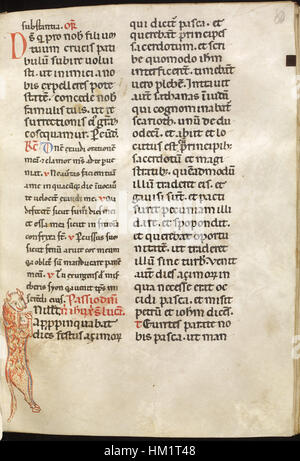 substantia. or.
Ds q pro nob filium
tuum crucis pati
bulum subire volui
sti ut inimici a no
bis expelleres pote
statem. concede nob
famulis tuis. ut re
surrectionis gratiam
cosequamur. P eund.
Dne exaudi orationem
meam & clamor ms ad te pue
niat. V Ne avertas faciem tuam
a me in quacuq; die invocavero
te velociter exaudi me. V Quia
defecerunt sicut fumus dies mei
et ossa mea sicut in
confrixa st. V Percussus sum
sicut fenum & aruit cor meum
qa oblitus sum manducare pane
meu. V Tu exurgens dne mi
sereberis syon qa venit tps mi
serendi eius. Passio dni
nri ihu xpi s. lucam.
In illo t. Appropinquabat
dies festus azimorum
qui dicitur pasca. et
querebant principes
sacerdotum et scri
be quomodo ihm
interficerent. timebant
vero plebem. Intra
vit aut sathanas in iudam
qui cognominabatur
scarioth. unum de du
odecim. et abiit et lo
cutus est principib;
sacerdotum et magi
stratib; quemadmodum
illum traderet eis. et
gavisi sunt. et pacti
sunt pecuniam illi
dare. et spopondit.
et querebat oportu
nitatem ut traderet
illum sine turbis. venit
aut dies azimorum in
qua necesse erat oc
cidi pasca. et misit
petrum et iohm dicens.
Euntes parate no
bis pasca. ut man
alamy
Image ID: HM1T48
www.alamy.com